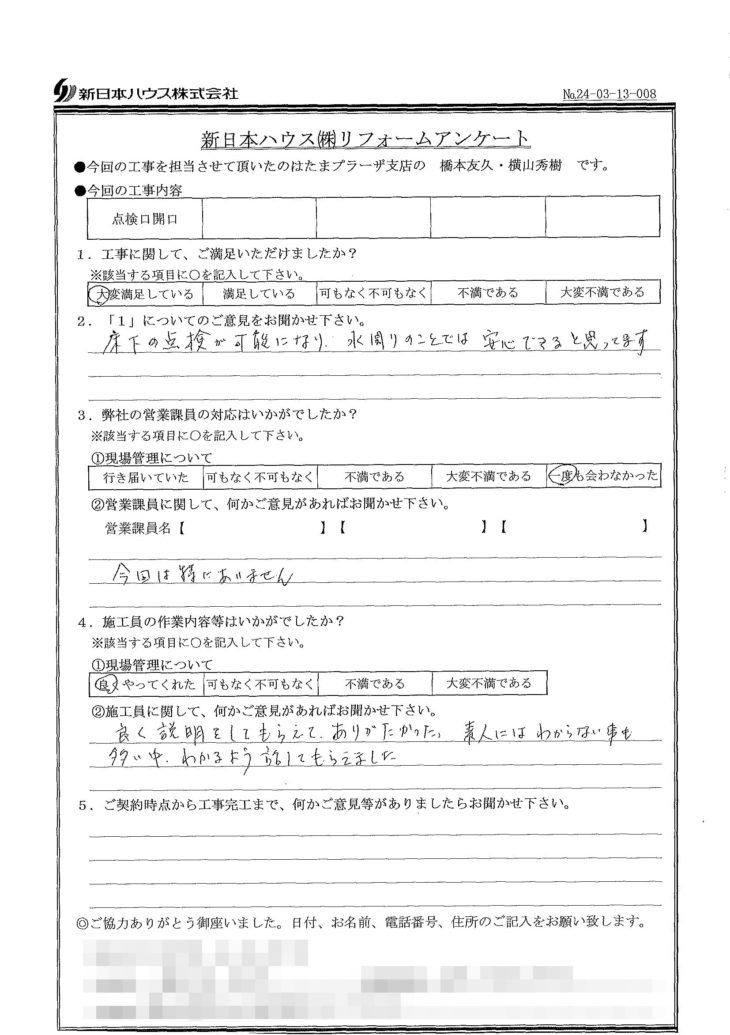 新日本ハウス株式会社
№24-03-13-008
新日本ハウス㈱リフォームアンケート
●今回の工事を担当させて頂いたのはたまプラーザ支店の　橋本友久・横山秀樹　です。
●今回の工事内容
点検口開口
1．工事に関して、ご満足いただけましたか？
※該当する項目に○を記入して下さい。
大変満足している　満足している　可もなく不可もなく　不満である　大変不満である
2．「1」についてのご意見をお聞かせ下さい。
床下の点検が可能になり、水周りのことでは 安心できると思ってます
3．弊社の営業課員の対応はいかがでしたか？
※該当する項目に○を記入して下さい。
①現場管理について
行き届いていた　可もなく不可もなく　不満である　大変不満である　一度も会わなかった
②営業課員に関して、何かご意見があればお聞かせ下さい。
営業課員名【　　　】【　　　】【　　　】
今回は特にありません
4．施工員の作業内容等はいかがでしたか？
※該当する項目に○を記入して下さい。
①現場管理について
良くやってくれた　可もなく不可もなく　不満である　大変不満である
②施工員に関して、何かご意見があればお聞かせ下さい。
良く説明をしてもらえて、ありがたかった。素人にはわからない事も
多い中、わかるよう話してもらえました
5．ご契約時点から工事完工まで、何かご意見等がありましたらお聞かせ下さい。
◎ご協力ありがとう御座いました。日付、お名前、電話番号、住所のご記入をお願い致します。